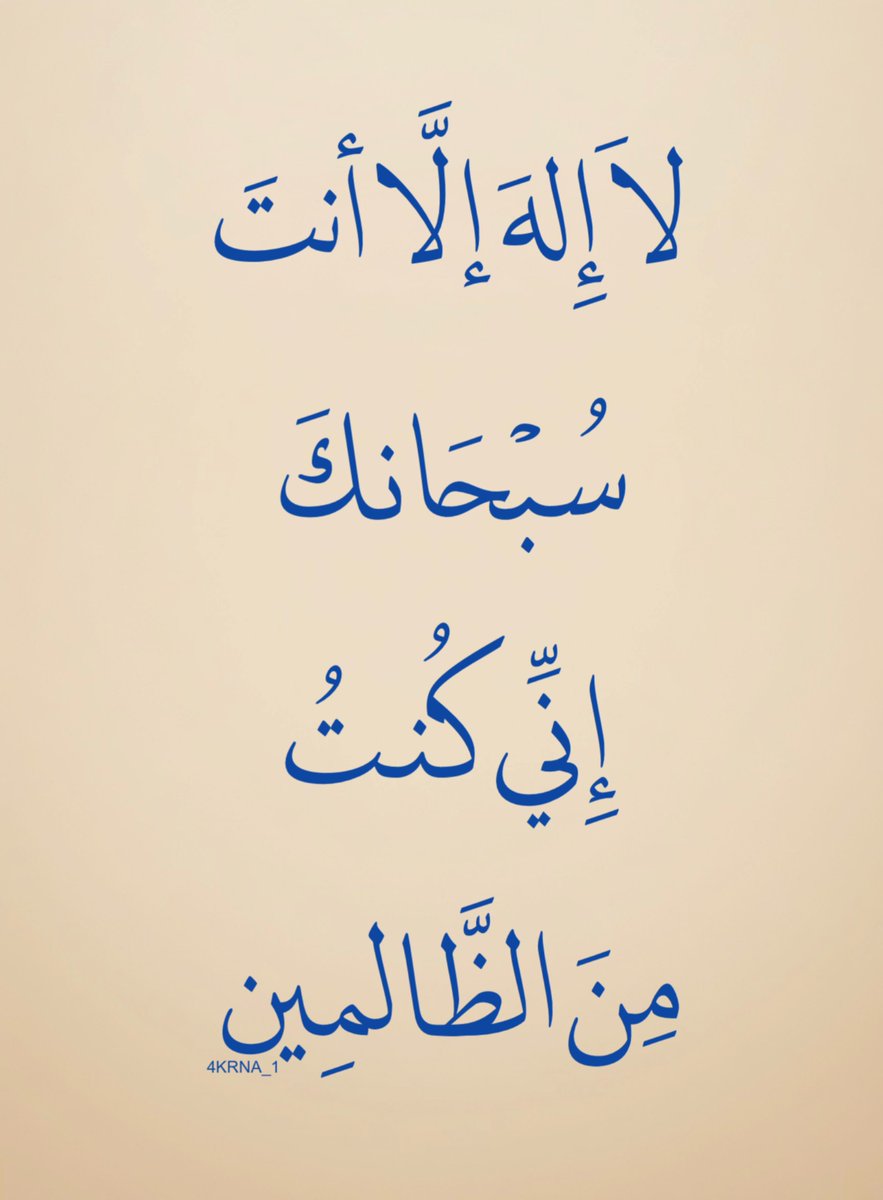 لاَ إِلهَ إلَّا أنتَ
سُبْحَانكَ
إِنِّي كُنتُ
مِنَ الظَّالمِين
4KRNA_1